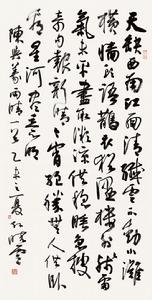 天缺西南江面清纖雲不動小灘
橫牆頭語鵲衣猶濕樓外殘雷
氣未平盡取微涼供穩睡急搜
奇句報新晴今宵絕勝無人共臥
看星河盡意明
陳與義雨晴一首乙未之夏